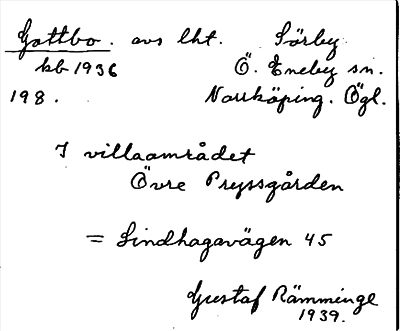 Gottbo. avs lht. Sörby
kb 1936 Ö. Eneby sn.
198. Norrköping. Ögl.
I villaområdet
Övre Pryssgården
= Lindhagavägen 45
Gustaf Rämminge
1939.